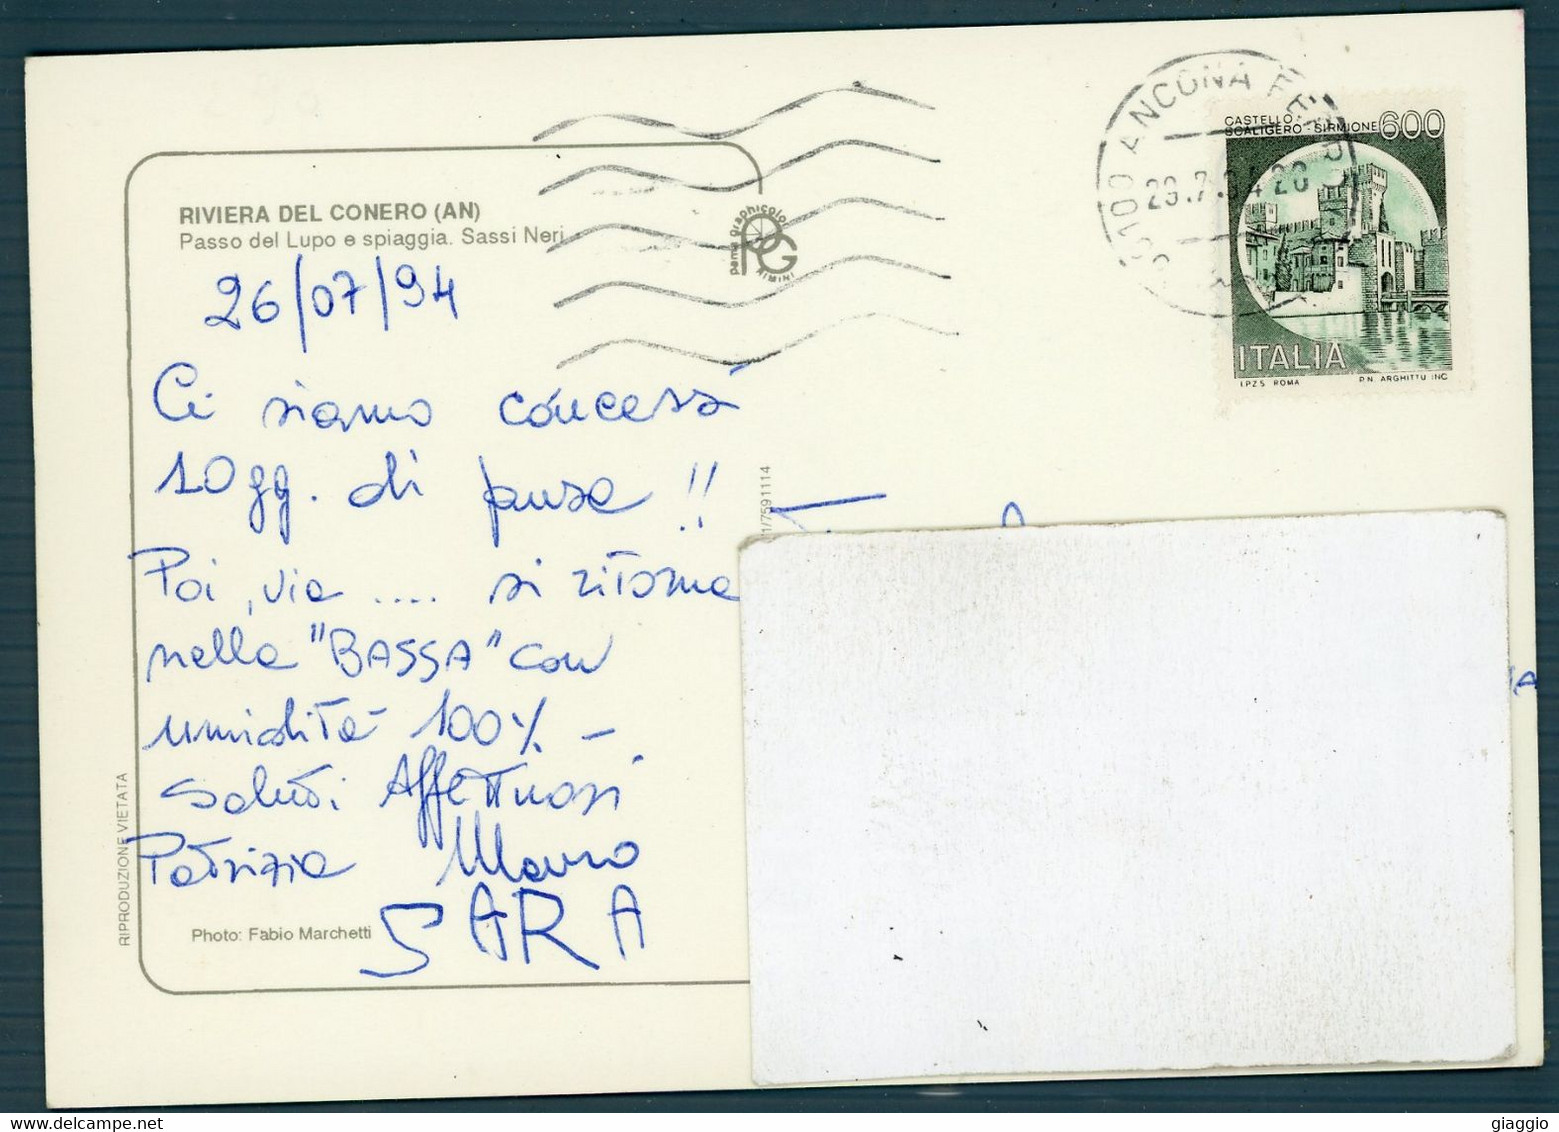 RIVIERA DEL CONERO (AN)
Passo del Lupo e spiaggia. Sassi Neri
pama graphicolor
PG
RIMINI
26/07/94
Ci siamo concessi
10 gg. di pausa !!
Poi, via .... si ritorna
nella "BASSA" con
umidità 100% –
Saluti Affettuosi
Patrizia Mauro
SARA
Photo: Fabio Marchetti
RIPRODUZIONE VIETATA
1/7591114
ANCONA FERR
29.7.94 20
CASTELLO
SCALIGERO - SIRMIONE 600
ITALIA
I.P.Z.S. ROMA P.N. ARGHITTU INC.
giaggio